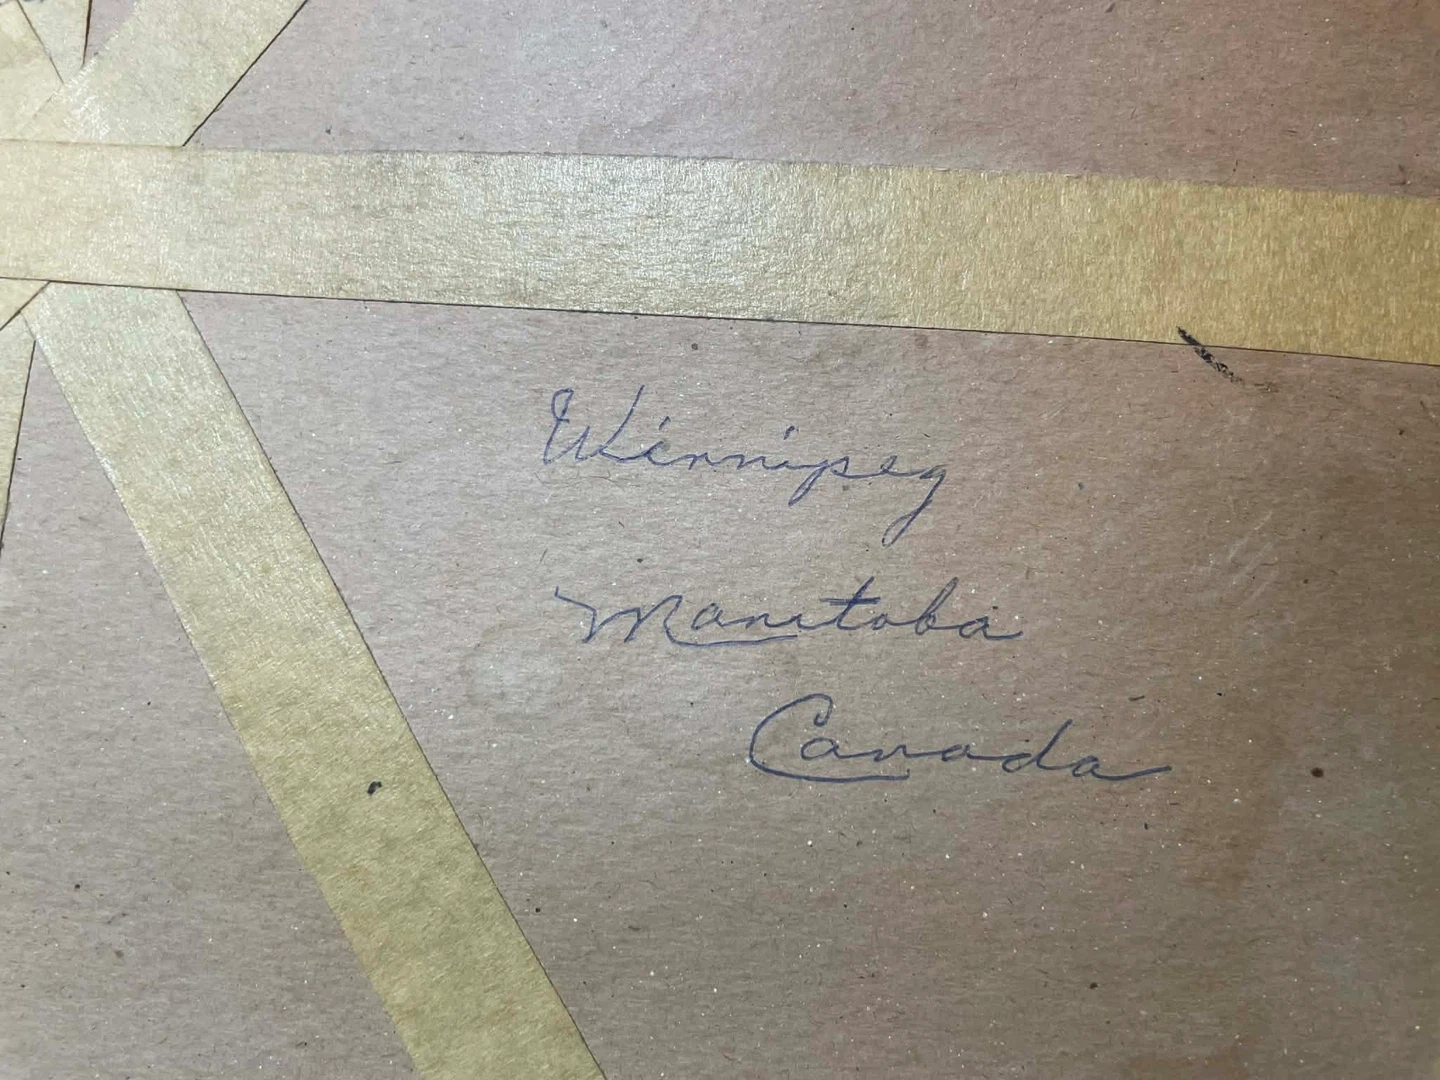 Winnipeg
Manitoba
Canada